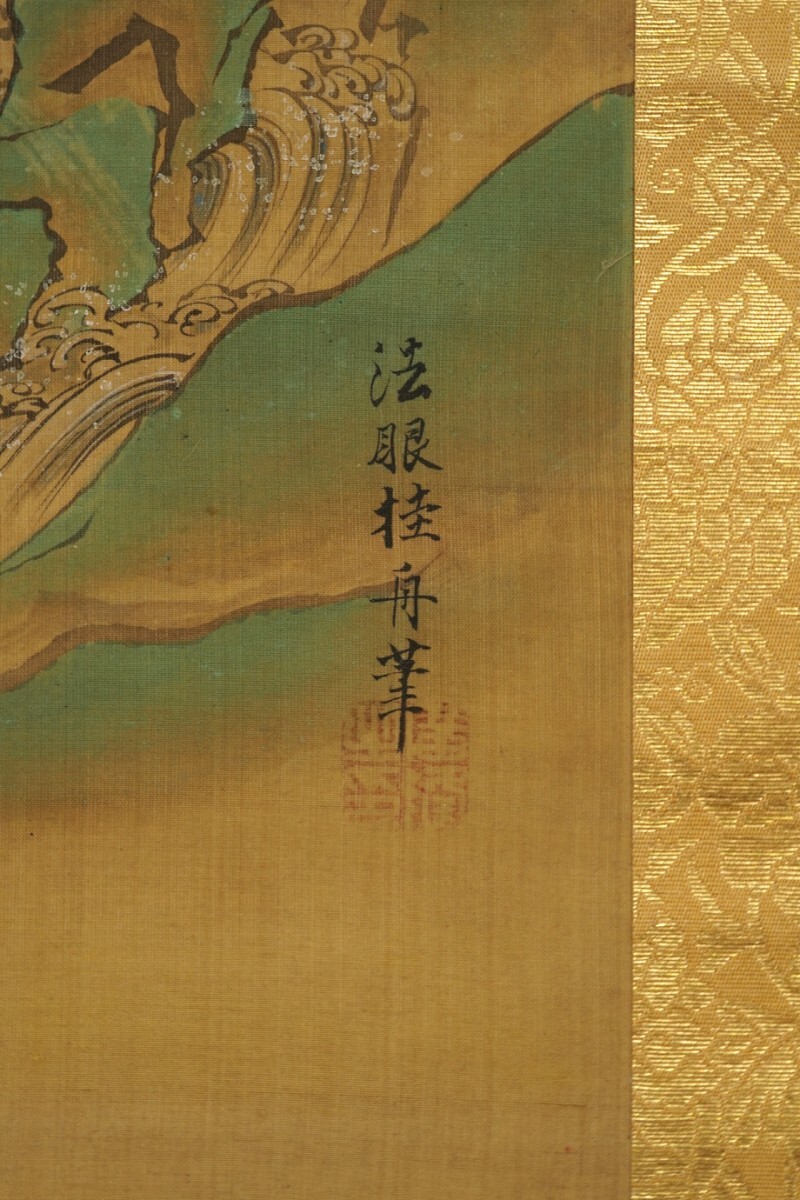 法眼桂舟筆